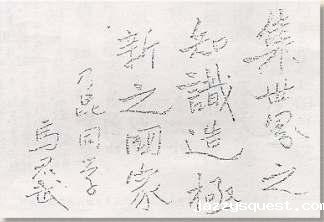 集世界之
知識造極
新之國家
乃昆同學
馬君武
jazzysquest.com